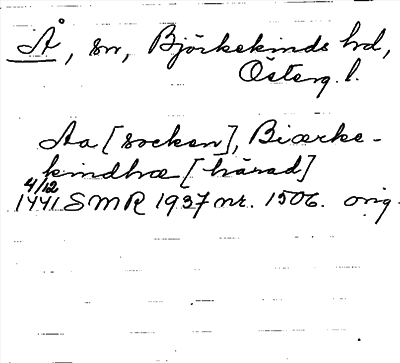 Å, sn, Björkekinds hd,
Österg. l.
Aa [socken], Biærke-
kindhæ [härad]
4/12
1441 SMR 1937 nr. 1506. orig.